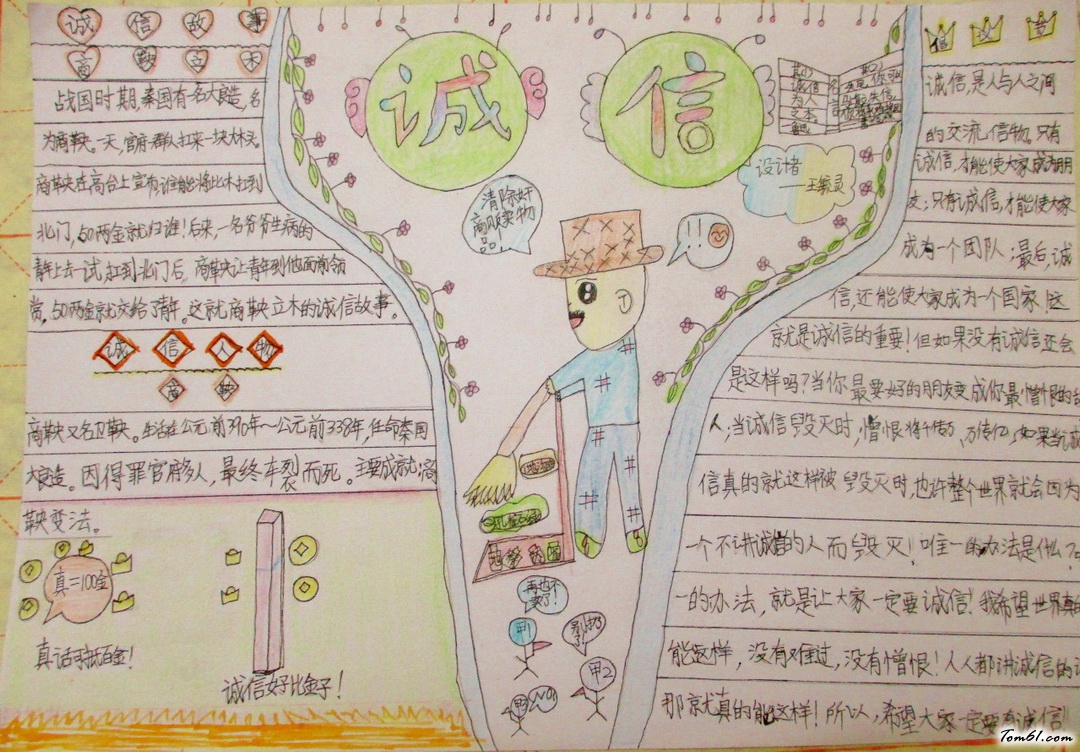 诚信故事
商鞅立木
战国时期,秦国有一名大良造,名
为商鞅。一天,官府群人扛来一块大木头。
商鞅在高台上宣布谁能将此木扛到
北门,50两金就归谁!后来,一名爷爷生病的
青年上去一试,扛到北门后,商鞅让青年到他面前领
赏,50两金就交给了青年。这就商鞅立木的诚信故事。
诚信人物
商鞅
商鞅又名卫鞅。生活在公元前390年~公元前338年,任命秦国
大良造。因得罪官府多人,最终车裂而死。主要成就:商
鞅变法。
真=100金
真话可抵百金!
诚信好比金子!
诚信
诚信
为人
之本
设计者
——王毓灵
清除奸
商贩卖物
品!
!!
再也不
敢了!
别扔
了!
甲1
甲2
NO!
诚信,是人与人之间
的交流信物。只有
诚信,才能使大家成为朋
友;只有诚信,才能使大家
成为一个团队;最后,诚
信,还能使大家成为一个国家!这
就是诚信的重要!但如果没有诚信还会
是这样吗?当你最要好的朋友变成你最憎恨的
人,当诚信毁灭时,憎恨将千传万,万传亿,如果当诚
信真的就这样被毁灭时,也许整个世界就会因为
一个不讲诚信的人而毁灭!唯一的办法是什么?
一的办法,就是让大家一定要诚信!我希望世界真的
能这样,没有难过,没有憎恨!人人都讲诚信的话
那就真的能这样!所以,希望大家一定要有诚信!
Tom61.com